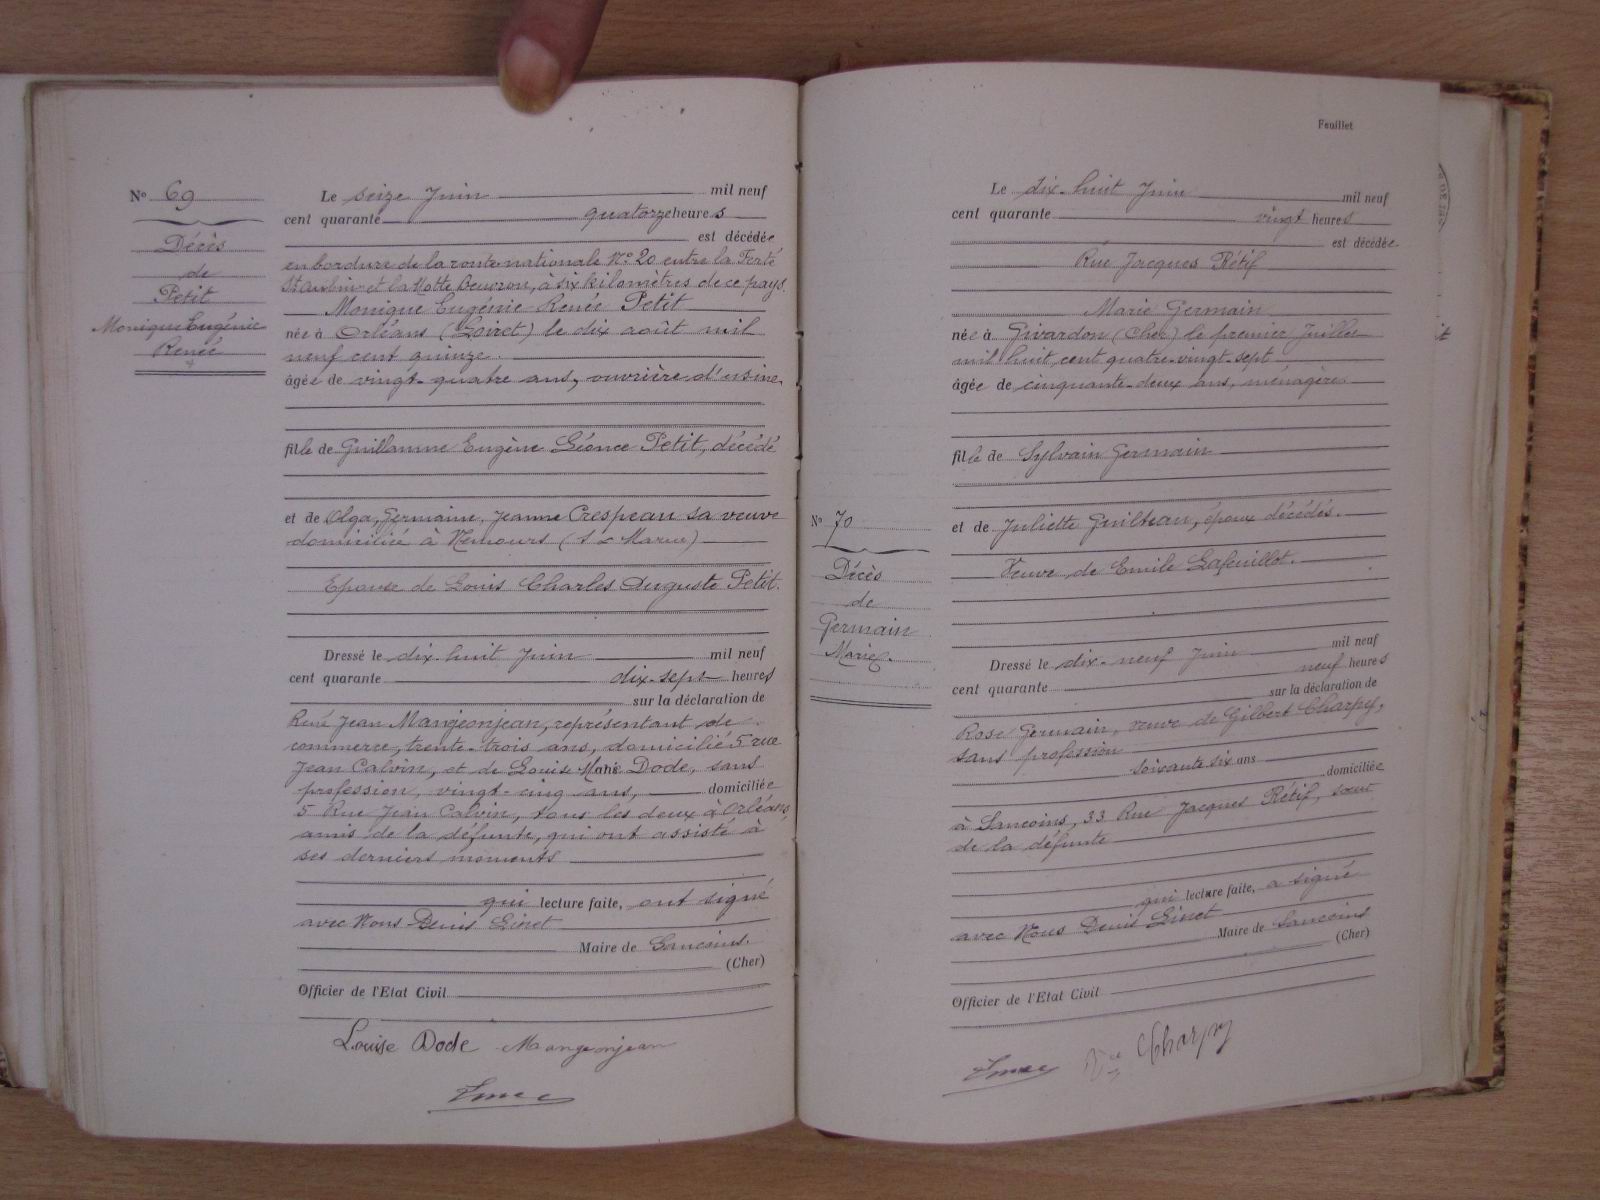 N° 69
Décès
de
Petit
Monique Eugénie
Renée
Le seize Juin mil neuf
cent quarante quatorze heures
est décédée
en bordure de la route nationale N° 20 entre la Ferté
St Aubin et la Motte Beuvron, à six kilomètres de ce pays.
Monique Eugénie Renée Petit
née à Orléans (Loiret) le dix août mil
neuf cent quinze.
âgée de vingt-quatre ans, ouvrière d'usine,
fille de Guillaume Eugène Léonce Petit, décédé
et de Olga, Germaine, Jeanne Crespeau sa veuve
domiciliée à Nemours (S & Marne)
Epouse de Louis Charles Auguste Petit.
Dressé le dix-huit Juin mil neuf
cent quarante dix-sept heures
sur la déclaration de
René Jean Mangeonjean, représentant de
commerce, trente-trois ans, domicilié 5 rue
Jean Calvin, et de Louise Marie Dode, sans
profession, vingt-cinq ans, domiciliée
5 Rue Jean Calvin, tous les deux à Orléans,
amis de la défunte, qui ont assisté à
ses derniers moments
qui lecture faite, ont signé
avec Nous Denis Ginet
Maire de Sancoins.
(Cher)
Officier de l'Etat Civil
Louise Dode Mangeonjean
Feuillet
N° 70
Décès
de
Germain
Marie
Le dix-huit Juin mil neuf
cent quarante vingt heures
est décédée
Rue Jacques Rétif
Marie Germain
née à Givardon (Cher) le premier Juillet
mil huit cent quatre-vingt-sept
âgée de cinquante-deux ans, ménagère
fille de Sylvain Germain
et de Juliette Guilteau, époux décédés.
Veuve de Emile Lafeuillot.
Dressé le dix-neuf Juin mil neuf
cent quarante neuf heures
sur la déclaration de
Rose Germain, veuve de Gilbert Charpy,
sans profession
soixante six ans
domiciliée
à Sancoins, 33 Rue Jacques Rétif, sœur
de la défunte
qui lecture faite, a signé
avec Nous Denis Ginet
Maire de Sancoins
(Cher)
Officier de l'Etat Civil
Vve Charpy